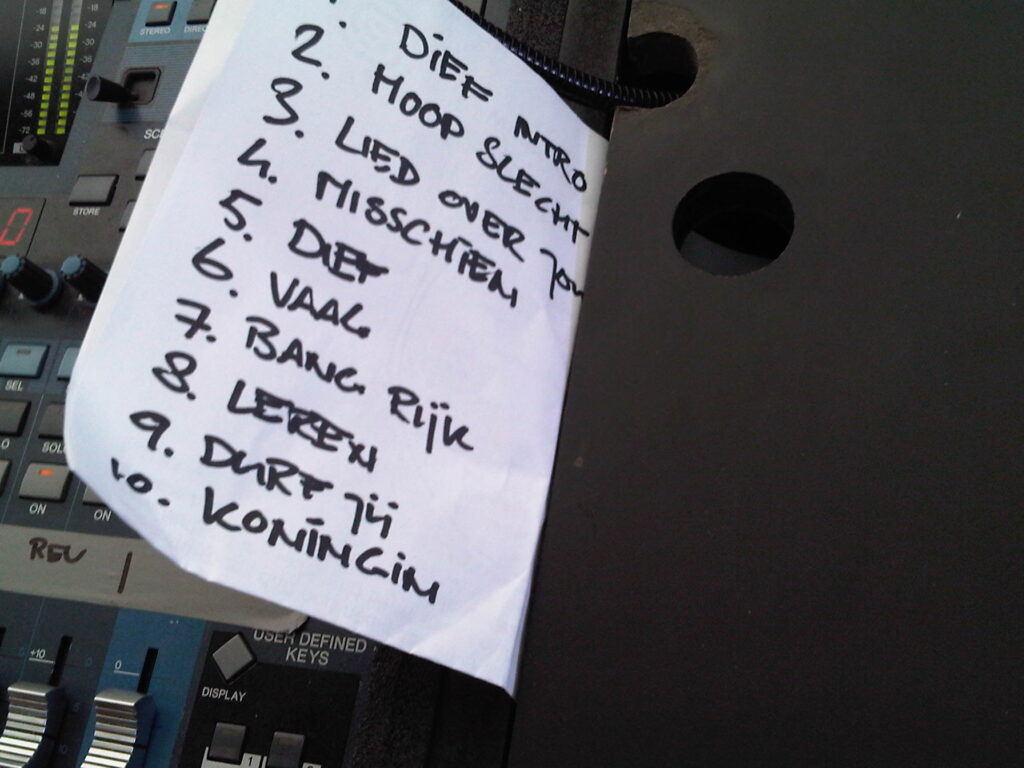 1. DIEF INTRO
2. HOOP SLECHT
3. LIED OVER JOU
4. MISSCHIEN
5. DIEF
6. VAAG
7. BANG RIJK
8. LEREN
9. DURF JIJ
10. KONINGIN
STEREO
-18
-24
-30
-36
-42
-48
-56
-72
STORE
0
SEL
SOL
ON
ON
REV
+10
0
USER DEFINED
KEYS
DISPLAY
1